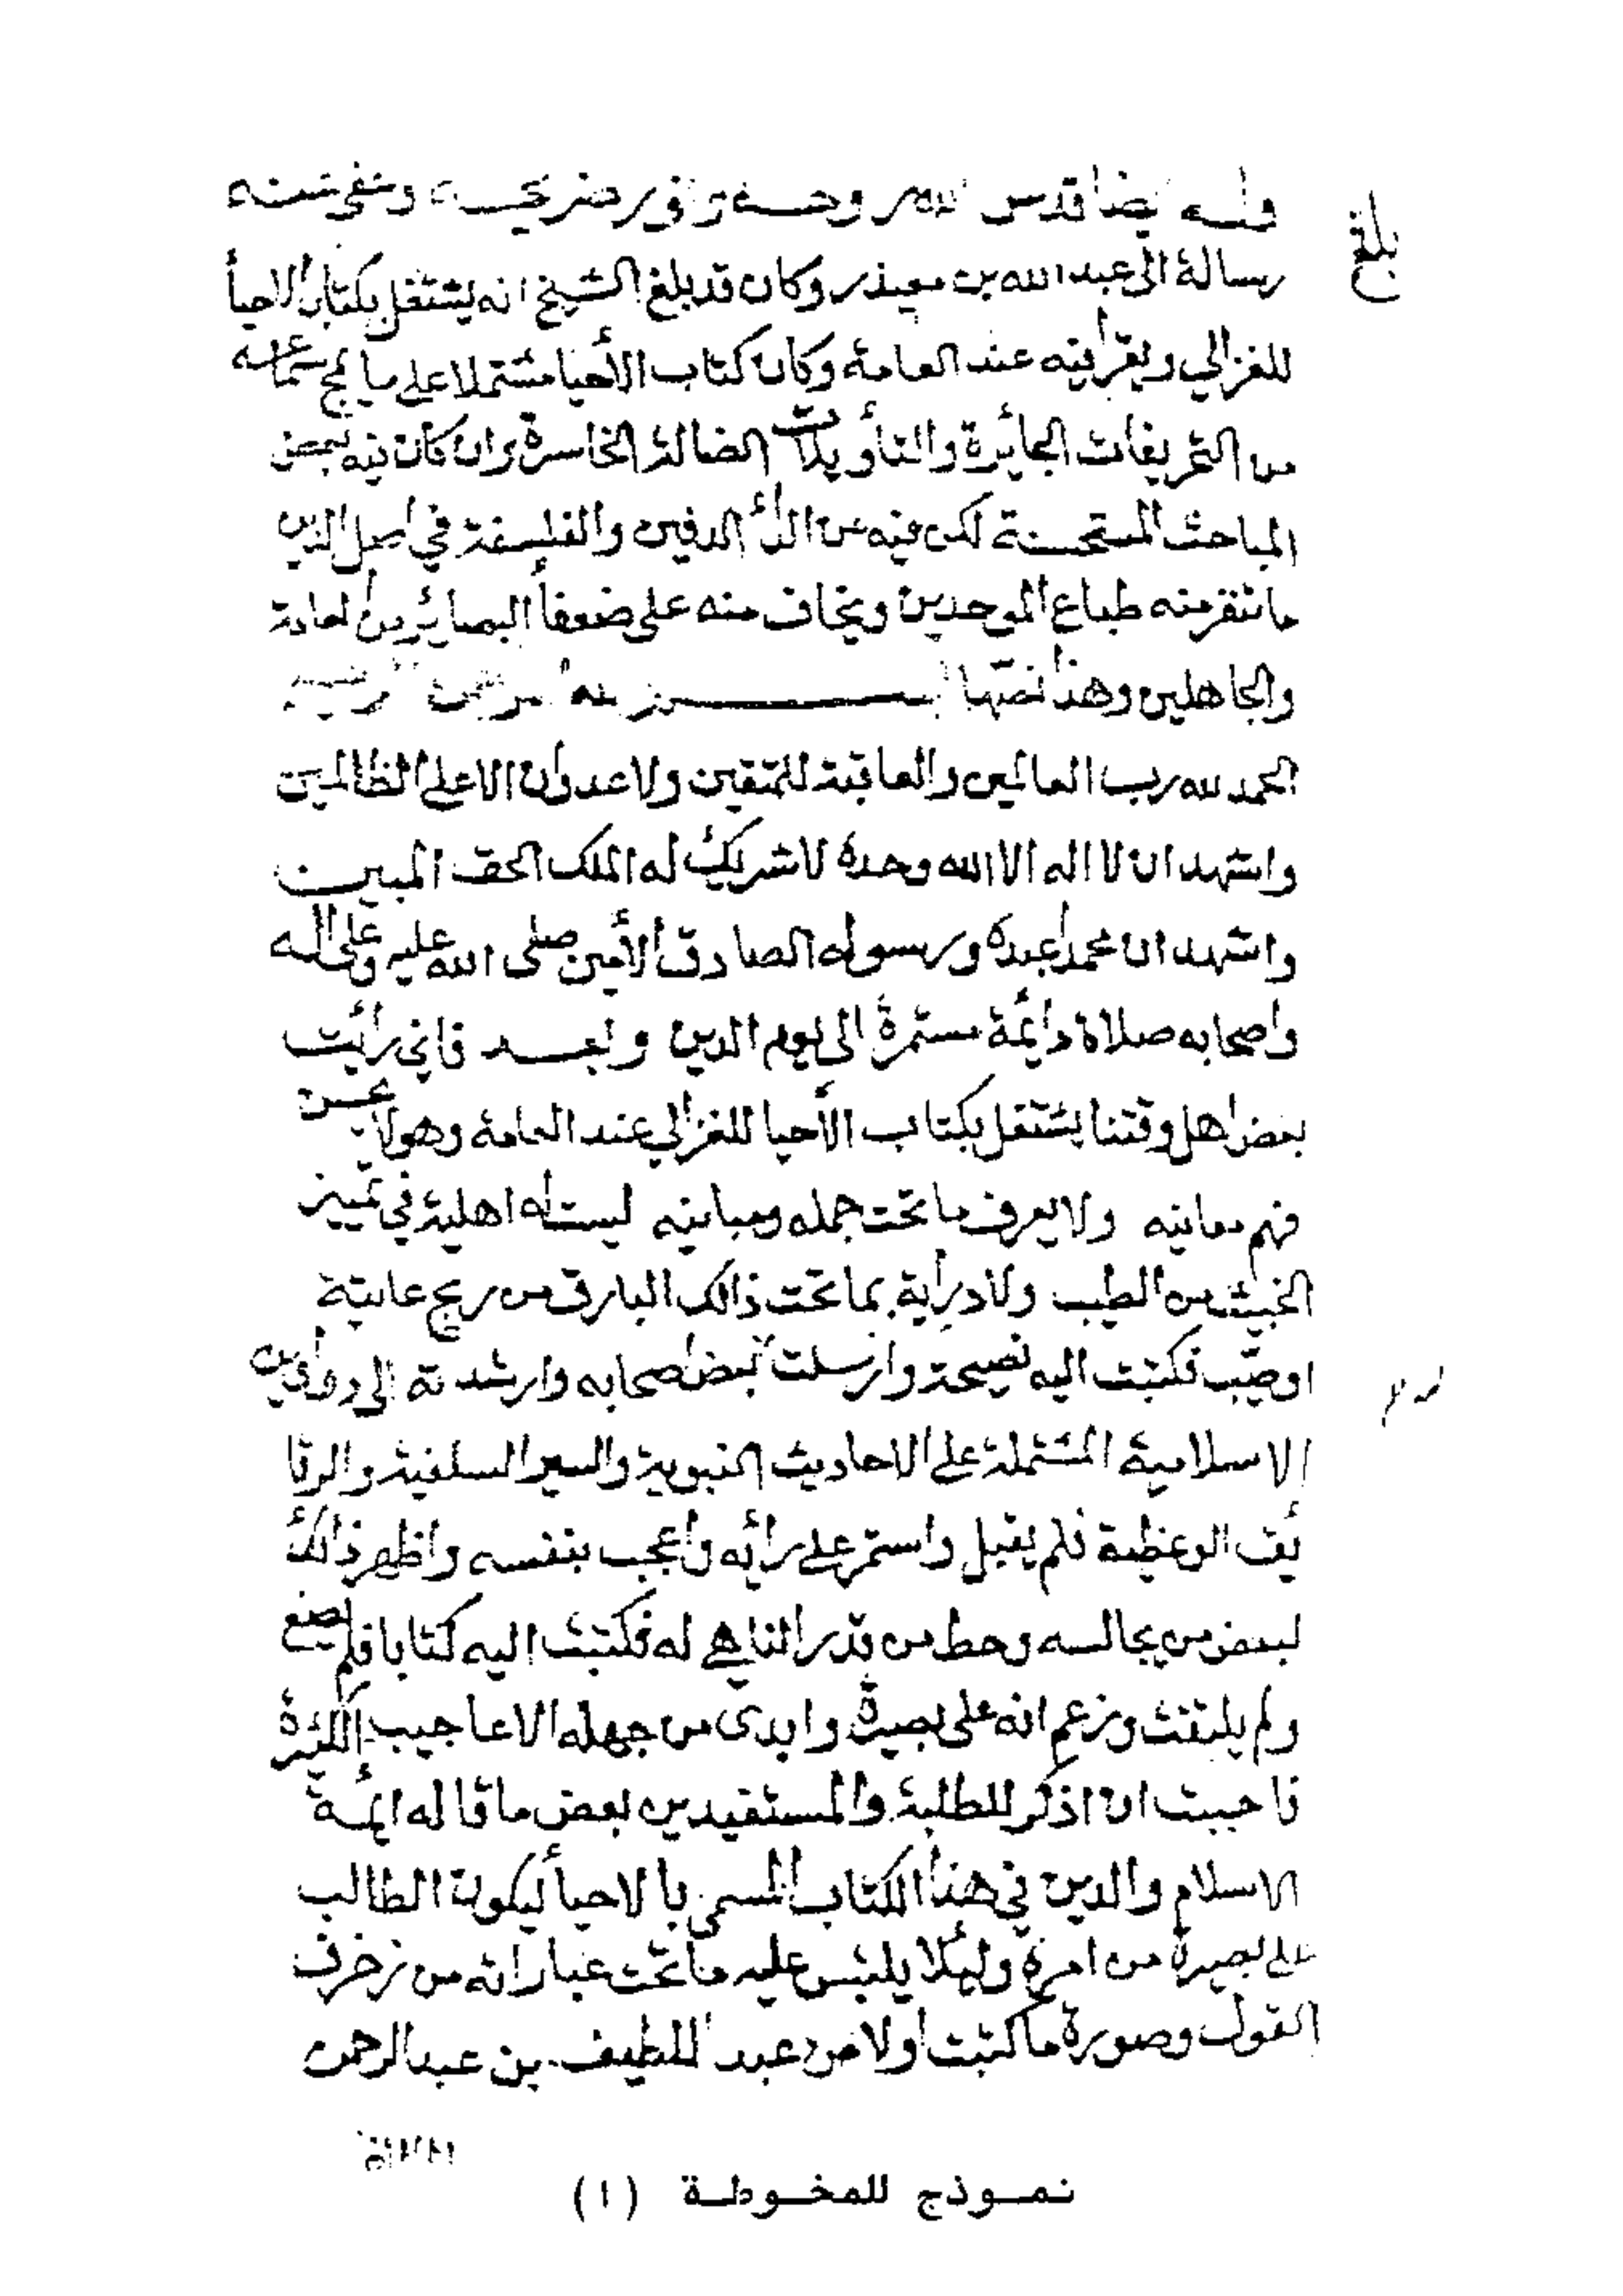 وله أيضا قدس الله روحه ونور ضريحه وعفى عنه
بلغ
رسالة الى عبد الله بن معيذر وكان قد بلغ الشيخ انه يشتغل بكتاب الاحيأ
للغزالي ويقرأ فيه عند العامة وكان كتاب الأحيا مشتملا على ما يمج سماعه
من التحريفات الجائرة والتأويلات الضالة الخاسرة وان كان فيه بعض
المباحث المستحسنة لكن فيه من الدأ الدفين والفلسفة في اصل الدين
ما تنفر منه طباع الموحدين ويخاف منه على ضعفأ البصائر من العامة
والجاهلين وهذا نصها بسم الله الرحمن الرحيم
الحمد لله رب العالمين والعاقبة للمتقين ولا عدوان الا على الظالمين
واشهد ان لا اله الا الله وحده لا شريك له الملك الحق المبين
واشهد ان محمدا عبده ورسوله الصادق الأمين صلى الله عليه وعلى اله
واصحابه صلاة دائمة مستمرة الى يوم الدين وبعد فاني رأيت
بعض اهل وقتنا يشتغل بكتاب الأحيا للغزالي عند العامة وهو لا يحسن
فهم معانيه ولا يعرف ما تحت جمله ومبانيه ليست له اهلية في تمييز
الخبيث من الطيب ولا دراية بما تحت ذالك البارق من ريح عاتية
او صيب فكتبت اليه نصيحة وارسلت بعض اصحابه وارشدته الى دواوين
الاسلامية المشتملة على الاحاديث النبوية والسير السلفية والرقا
ئق الوعظية فلم يقبل واستمر على رائه واعجب بنفسه واظهر ذالك
لبعض من يجالسه وحط من قدر الناهي له فكتبت اليه كتابا فلم يصغ
ولم يلتفت وزعم انه على بصيرة وابدى من جهله الاعاجيب الكثيرة
فاحببت ان اذكر للطلبة والمستفيدين بعض ما قاله ائمة
الاسلام والدين في هذا الكتاب المسمى بالاحيأ ليكون الطالب
على بصيرة من امره ولئلا يلتبس عليه ما تحت عباراته من زخرف
القول وصورة ما كتبت اولا من عبد اللطيف بن عبد الرحمن
نموذج للمخوطة (١)